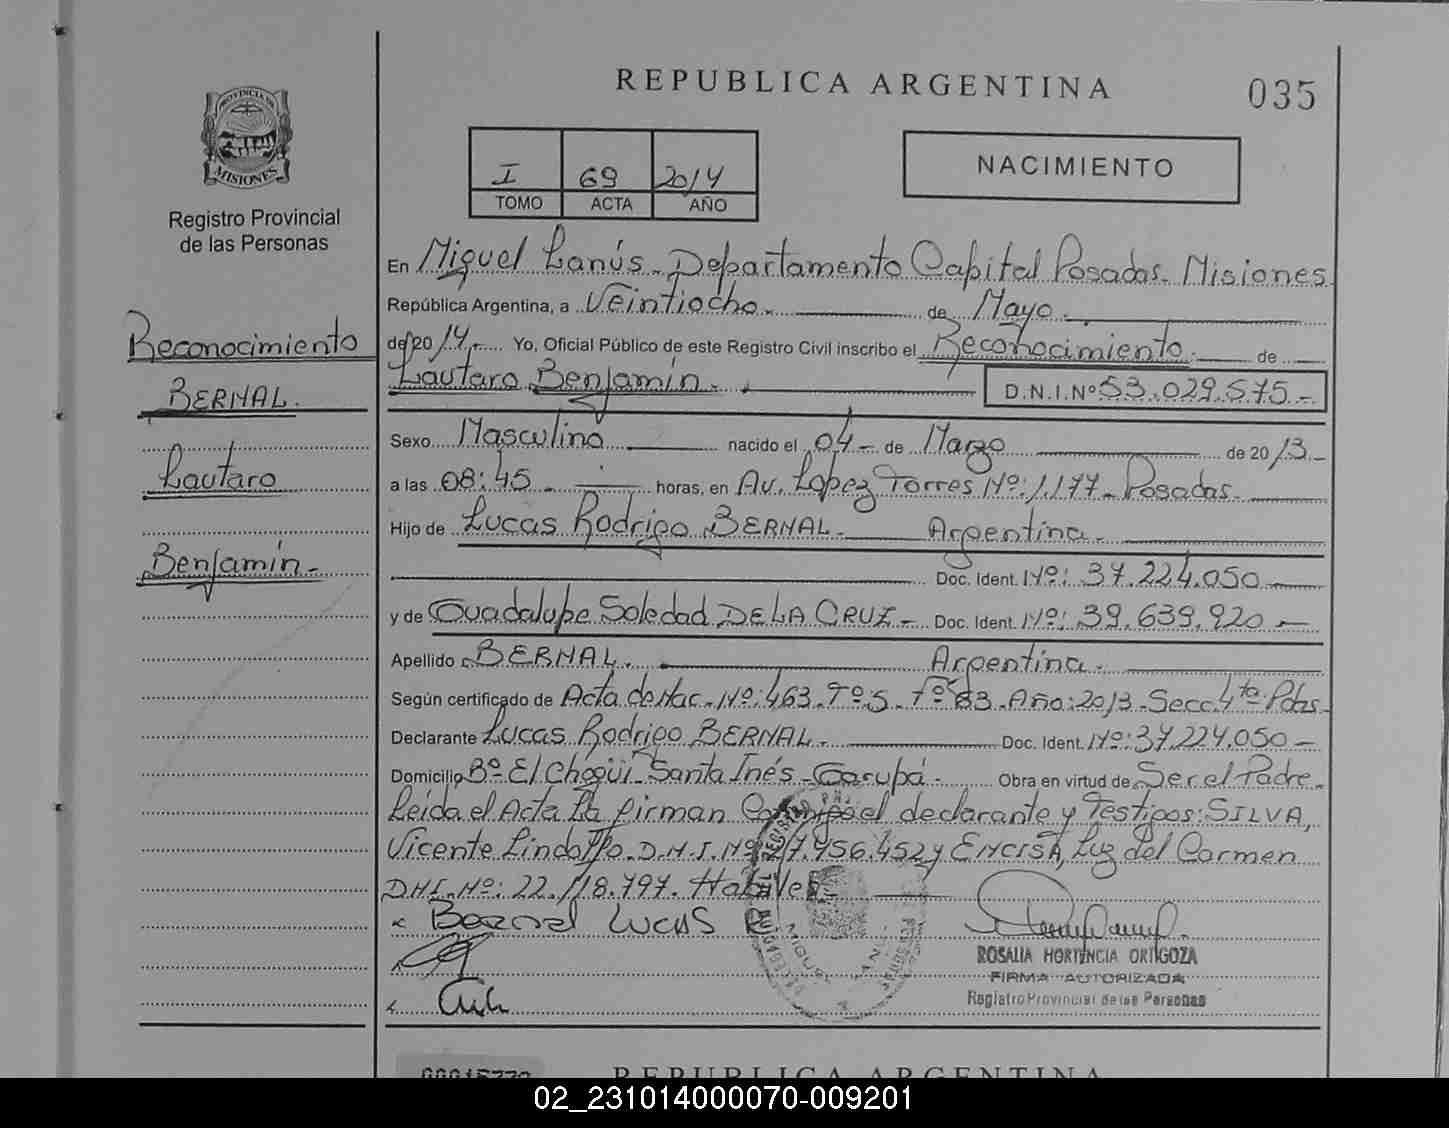 REPUBLICA ARGENTINA
035
PROVINCIA DE
MISIONES
Registro Provincial
de las Personas
I 69 2014
TOMO ACTA AÑO
NACIMIENTO
Reconocimiento
BERNAL.
Lautaro
Benjamín.-
En Miguel Lanús. Departamento Capital Posadas. Misiones
República Argentina, a Veintiocho. de Mayo.
de 2014. Yo, Oficial Público de este Registro Civil inscribo el Reconocimiento. de
Lautaro Benjamín. D.N.I.Nº 53.029.575.-
Sexo Masculino nacido el 04 - de Marzo de 2013 -
a las 08:45 - horas, en Av. Lopez Torres Nº: 1.177 - Posadas.
Hijo de Lucas Rodrigo BERNAL. Argentina.
Doc. Ident. Nº: 37.224.050
y de Guadalupe Soledad DE LA CRUZ - Doc. Ident. Nº: 39.639.920 -
Apellido BERNAL. Argentina.
Según certificado de Acta de Nac. Nº: 463. Tº: 5. Fº 83. Año: 2013. Secc. 4ta Pdas.
Declarante Lucas Rodrigo BERNAL. Doc. Ident. Nº: 37.224.050 -
Domicilio Bº El Chogüí Santa Inés - Garupá. Obra en virtud de Ser el Padre.
Leída el Acta La firman Conmigo el declarante y Testigos: SILVA,
Vicente Lindolfo. D.N.I. Nº 27.456.452 y ENCISA, Luz del Carmen
DNI. Nº: 22.118.797. Habiles
Bernal Lucas R
ROSALIA HORTENCIA ORTIGOZA
FIRMA AUTORIZADA
Registro Provincial de las Personas
REPUBLICA ARGENTINA
02_231014000070-009201